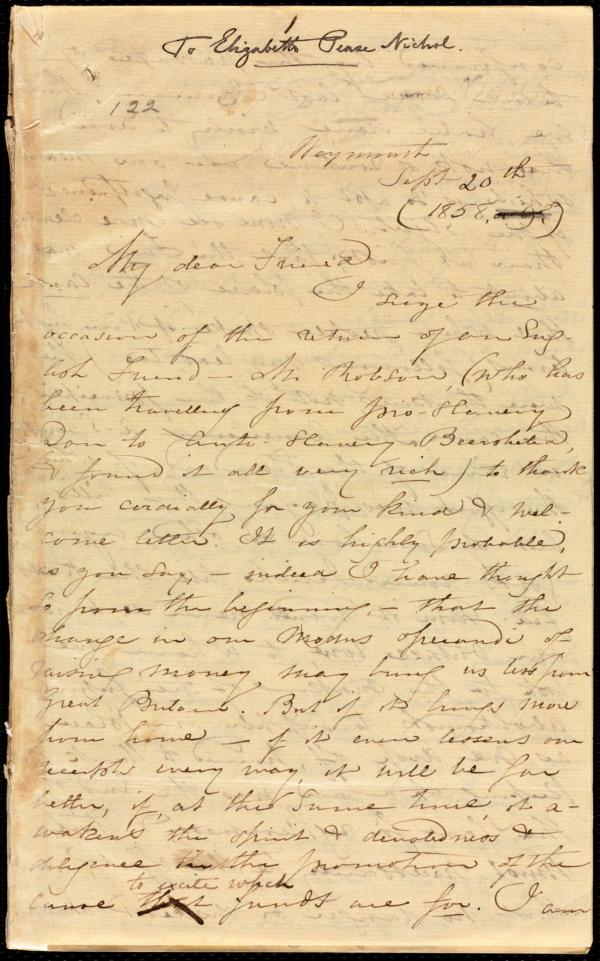 1
To Elizabeth Pease Nichol.
122
Weymouth
Sept 20th
(1858, or 9?)
My dear Friend
I seize the
occasion of the return of an Eng-
lish Friend - Mr Robson, (who has
been travelling from pro-Slavery
Dan to Anti Slavery Beersheba,
& found it all very rich) to thank
you cordially for your kind & wel-
come letter. It is highly probable,
as you say, - indeed I have thought
so from the beginning, - that the
change in our Modus operandi of
raising money, may bring us less from
Great Britain. But if it brings more
from home - if it even lessens our
receipts every way, it will be far
better, if, at the same time, it a-
wakens the spirit & devotedness &
diligence in the promotion of the
to excite which
cause that funds are for. I am